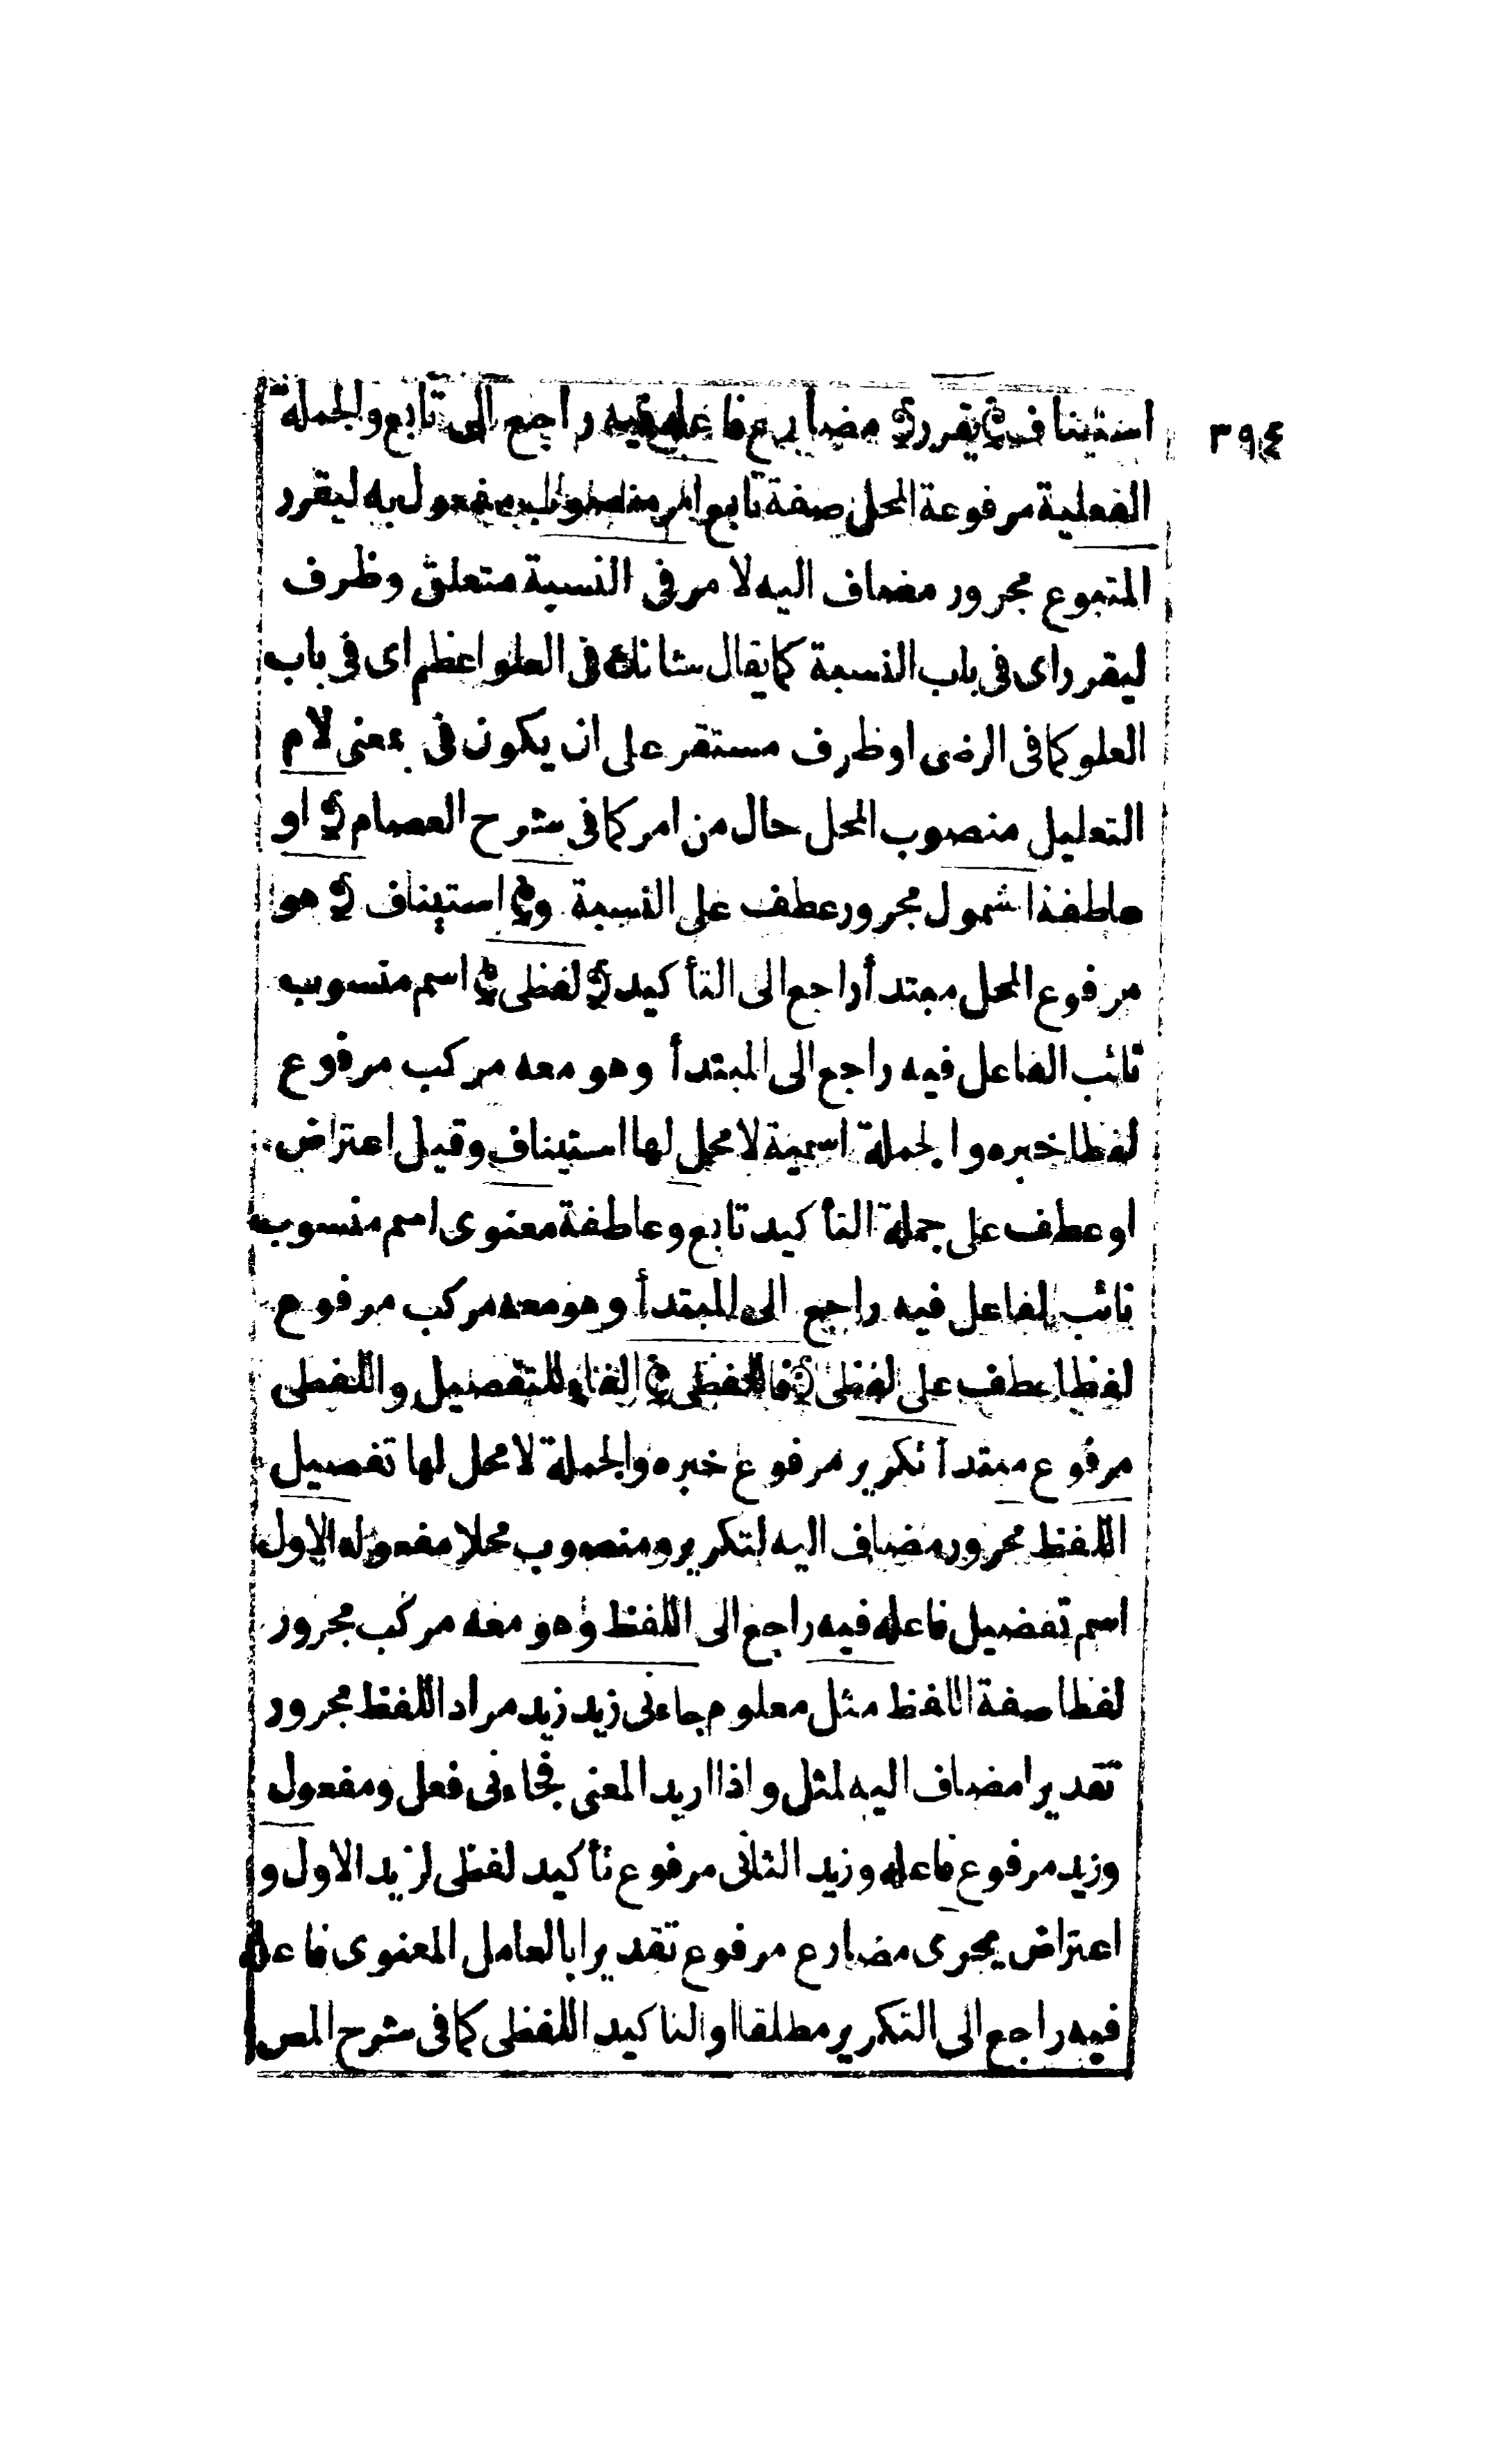 ٣٩٤
استيناف ﴿ يقرر ﴾ مضارع فاعله فيه راجع الى تابع والجملة
الفعلية مرفوعة المحل صفة تابع امر منصوب مفعول به ليقرر
المتبوع مجرور مضاف اليه لامر فى النسبة متعلق وظرف
ليقرر اى فى باب النسبة كما يقال شانك فى العلو اعظم اى فى باب
العلو كما فى الرضى او ظرف مستقر على ان يكون فى بمعنى لام
التعليل منصوب المحل حال من امر كما فى شرح العصام ﴾ او
عاطفة اشمول مجرور عطف على النسبة و ﴿ استيناف ﴾ هو
مرفوع المحل مبتدأ راجع الى التأكيد ﴾ لفظى ﴿ اسم منسوب
نائب الفاعل فيه راجع الى المبتدأ وهو معه مركب مرفوع
لفظا خبره والجملة اسمية لا محل لها استيناف وقيل اعتراض
او عطف على جملة التأكيد تابع وعاطفة معنوى اسم منسوب
نائب لفاعل فيه راجع الى المبتدأ وهو معه مركب مرفوع
لفظا عطف على لفظى ﴾ فاللفظى ﴿ الفاء للتفصيل واللفظى
مرفوع مبتدأ تكرير مرفوع خبره والجملة لا محل لها تفصيل
اللفظ مجرور مضاف اليه لتكرير ومنصوب محلا مفعوله الاول
اسم تفضيل فاعله فيه راجع الى اللفظ وهو معه مركب مجرور
لفظا صفة اللفظ مثل معلوم جاءنى زيد زيد مراد اللفظ مجرور
تقديرا مضاف اليه لمثل واذا اريد المعنى فجاءنى فعل ومفعول
وزيد مرفوع فاعله وزيد الثانى مرفوع تأكيد لفظى لزيد الاول و
اعتراض يجرى مضارع مرفوع تقديرا بالعامل المعنوى فاعله
فيه راجع الى التكرير مطلقا او التاكيد اللفظى كما فى شرح المص